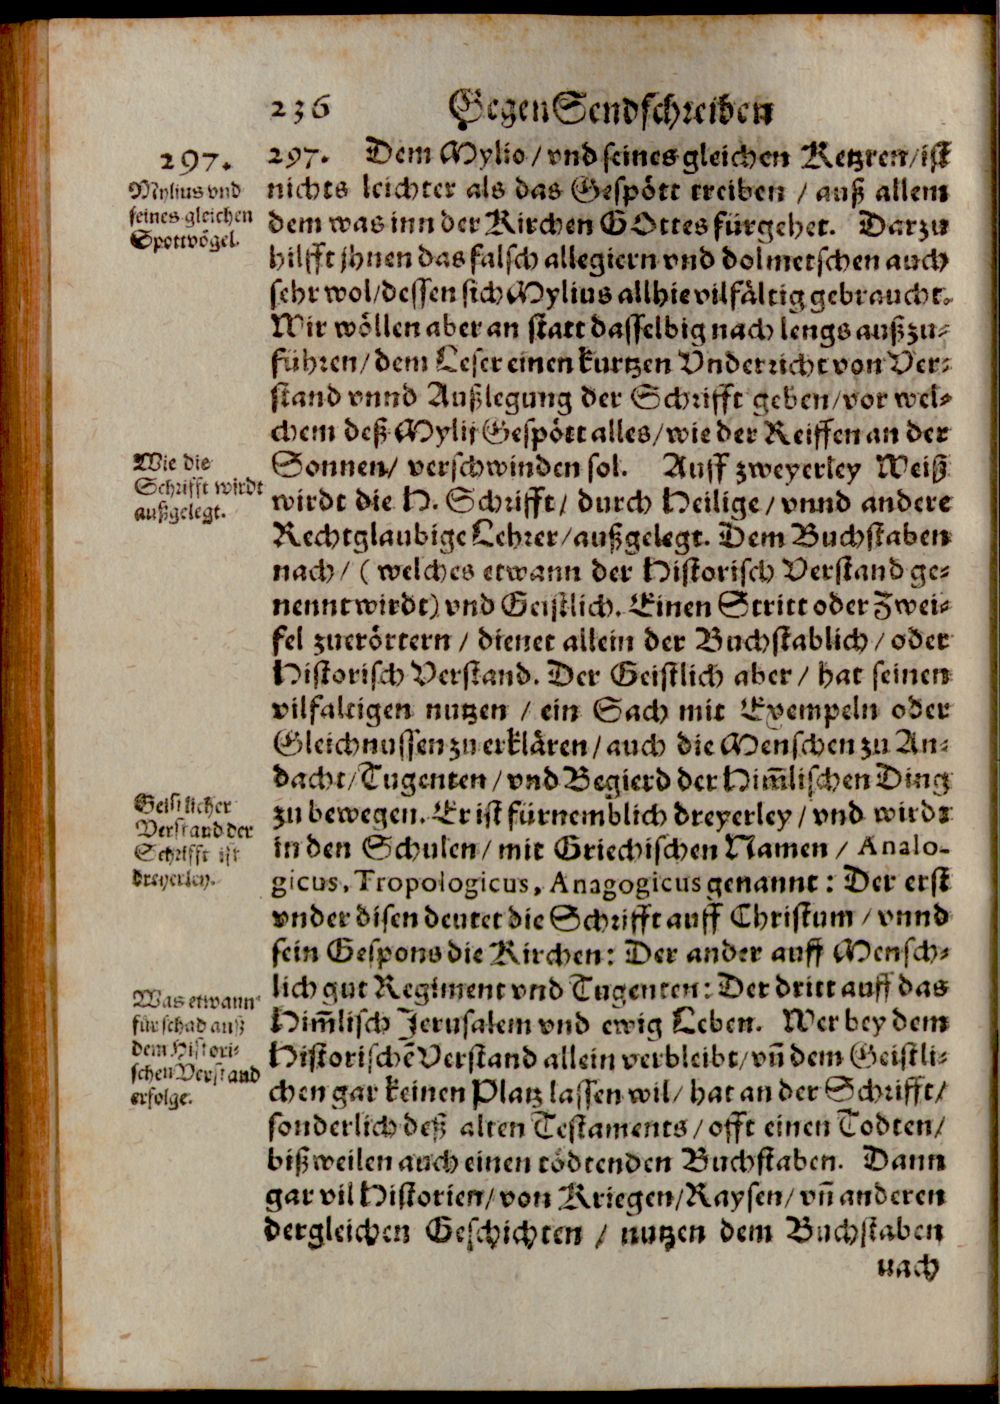 236 GegenSendschreiben
297.
Mylius vnd
seines gleichen
Spottvögel.
297. Dem Mylio / vnd seines gleichen Ketzren / ist
nichts leichter als das Gespött treiben / auß allem
dem was inn der Kirchen GOttes fürgehet. Darzu
hilfft jhnen das falsch allegiern vnd dolmetschen auch
sehr wol / dessen sich Mylius allhie vilfältig gebraucht.
Wir wöllen aber an statt dasselbig nach lengs außzu-
führen / dem Leser einen kurtzen Vnderricht von Ver-
stand vnnd Außlegung der Schrifft geben / vor wel-
chem deß Mylij Gespött alles / wie der Reiffen an der
Wie die
Schrifft wirdt
außgelegt.
Sonnen / verschwinden sol. Auff zweyerley Weiß
wirdt die H. Schrifft / durch Heilige / vnnd andere
Rechtglaubige Lehrer / außgelegt. Dem Buchstaben
nach / ( welches etwann der Historisch Verstand ge-
nennt wirdt) vnd Geistlich. Einen Stritt oder Zwei-
fel zuerörtern / dienet allein der Buchstablich / oder
Historisch Verstand. Der Geistlich aber / hat seinen
vilfaltigen nutzen / ein Sach mit Exempeln oder
Gleichnussen zu erklären / auch die Menschen zu An-
dacht / Tugenten / vnd Begierd der Him̃lischen Ding
Geistlicher
Verstand der
Schrifft ist
dreyerley.
zu bewegen. Er ist fürnemblich dreyerley / vnd wirdt
in den Schulen / mit Griechischen Namen / Analo-
gicus, Tropologicus, Anagogicus genannt : Der erst
vnder disen deutet die Schrifft auff Christum / vnnd
sein Gespons die Kirchen : Der ander auff Mensch-
lich gut Regiment vnd Tugenten : Der dritt auff das
Was etwann
für schad auß
dem Histori-
schen Verstand
erfolge.
Him̃lisch Jerusalem vnd ewig Leben. Wer bey dem
Historischẽ Verstand allein verbleibt / vñ dem Geistli-
chen gar keinen Platz lassen wil / hat an der Schrifft /
sonderlich deß alten Testaments / offt einen Todten /
bißweilen auch einen tödtenden Buchstaben. Dann
gar vil Historien / von Kriegen / Raysen / vñ anderen
dergleichen Geschichten / nutzen dem Buchstaben
nach